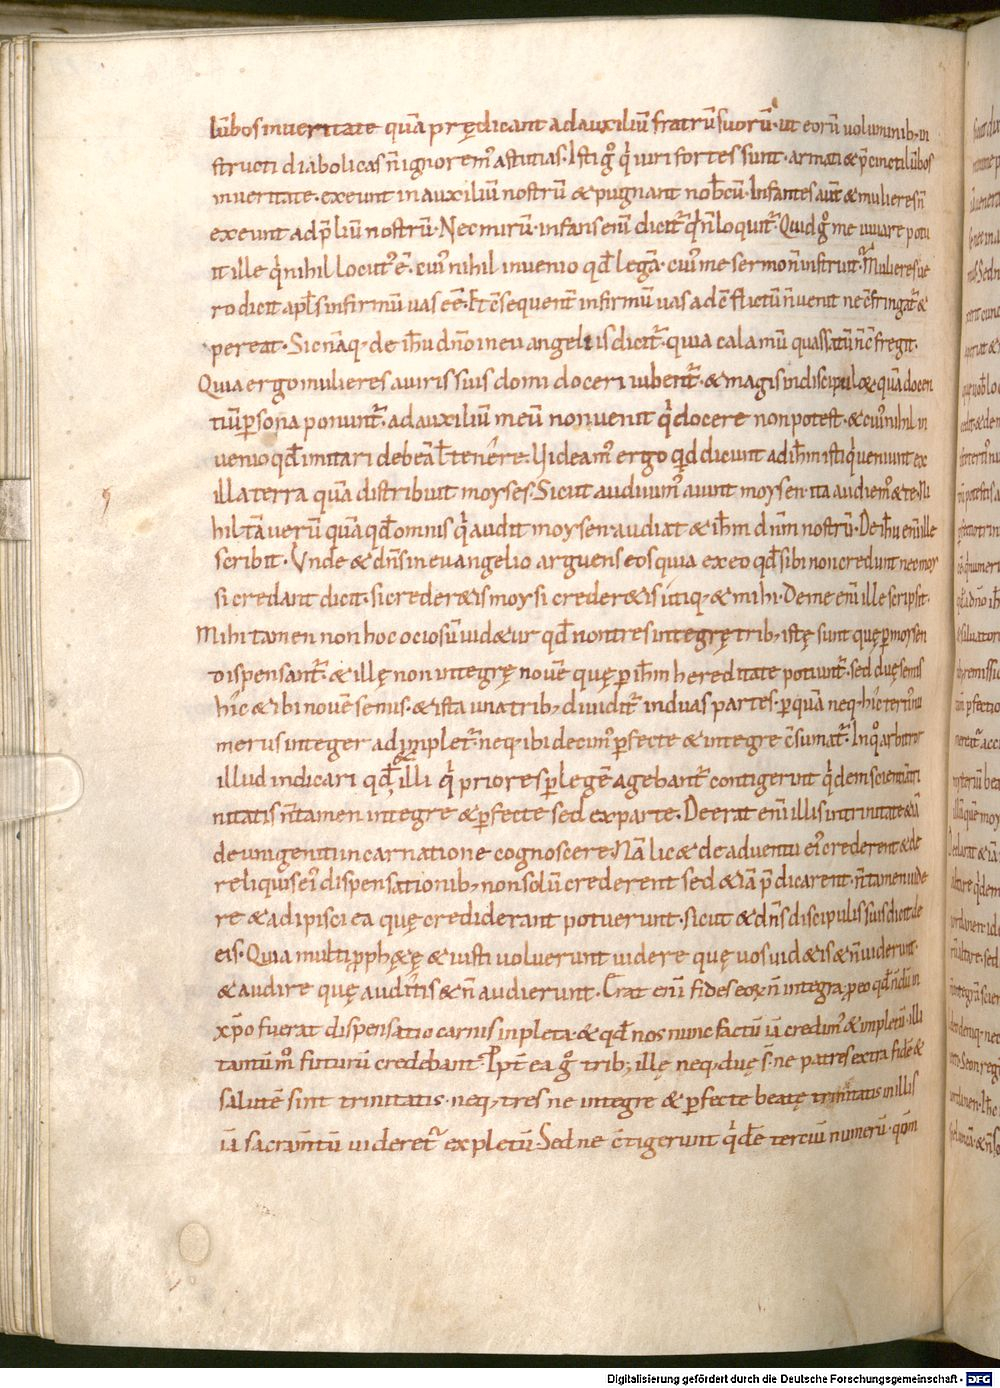 lūbos inueritate quā prędicant adauxiliū fratrū suorū· ut eorū uoluminib· in
structi diabolicas n̄ ignorem' astutias· Isti g° q̇ uiri fortes sunt· armati & p̄cincti lūbos
inueritate· exeunt inauxiliū nostrū & pugnant nobcū· Infantes aut̄ & mulieres n̄
exeunt adp̄liū nostrū· Nec mirū· infans enī dicit̄ qd n̄ loquit̄· Quid g° me iuuare potu
it ille q̇ nihil locut' ē· cui' nihil inuenio qd legā· cui' me sermo n̄ instruit· Mulieres ue
ro dicit apls infirmū uas eē· Et c̄sequent̄ infirmū uas adc̄flictū n̄ uenit ne c̄fringat̄ &
pereat· Sic nāq· de ihu dn̄o ineuangeliis dicit̄· quia calamū quassatū n̄ c̄fregit·
Quia ergo mulieres auiris suis domi doceri iubent̄· & magis indiscipulo& quā docen
tiū persona ponunt̄· adauxiliū meū non uenit q̇ docere non potest· & cui' nihil in
uenio qd imitari debeā l tenere· Uideam' ergo quid dicunt adihm isti q̇ ueniunt ex
illa terra quā distribuit moyses· Sicut audiuim' aiunt moysen· ita audiem' & te· Ni
hil tā uerū quā qd omnis q̇ audit moysen· audiat & ihm dnm nostrū· De ihu enī ille
scribit· Vnde & dns ineuangelio arguens eos quia ex eo qd sibi non credunt nec moy
si credant dicit· si crederetis moysi crederetis utiq· & mihi· De me enī ille scripsit·
Mihi tamen non hoc ociosū uidetur qd non tres integrę trib; istę sunt quę p moysen
dispensant̄· & illę non integrę nouē quę p ihm hereditate potiunt̄· sed duę semis
hic & ibi nouē semis· & ista una trib; diuidit̄ induas partes· p quā neq· hic terti' nu
merus integer adimplet̄· neq· ibi decim' pfecte & integre c̄sumat̄· In q° arbitror
illud indicari qd illi q̇ priores p legē agebant̄ contigerunt q̇dem scientiā tri
nitatis n̄ tamen integre & pfecte sed ex parte· Deerat enī illis intrinitate &iā
de unigeniti incarnatione cognoscere· Nā lic& de aduentu ei' crederent & de
reliquis ei' dispensationib; non solū crederent sed &iā p̄dicarent· n̄ tamen uide
re & adipisci ea quę crediderant potuerunt· sicut & dns discipulis suis dicit de
eis· Quia multi pph&ę & iusti uoluerunt uidere quę uos uid&is & n̄ uiderunt·
& audire quę auditis & n̄ audierunt· Erat enī fides eorum n̄ integra, p eo qd n̄dū in
xpo fuerat dispensatio carnis inpleta· & qd nos nunc factū iā credim' & impletū· illi
tantūm° futurū credebant· Ppt̄ ea g° trib; illę neq; duę s̄· ne patres extra fidē &
salutē sint trinitatis· neq; tres ne integre & pfecte beatę trinitatis in illis
iā sacram̄tū uideret̄ expletū· Sed ne c̄tigerunt q̇dē terciū numerū· qm̄
Digitalisierung gefördert durch die Deutsche Forschungsgemeinschaft - DFG